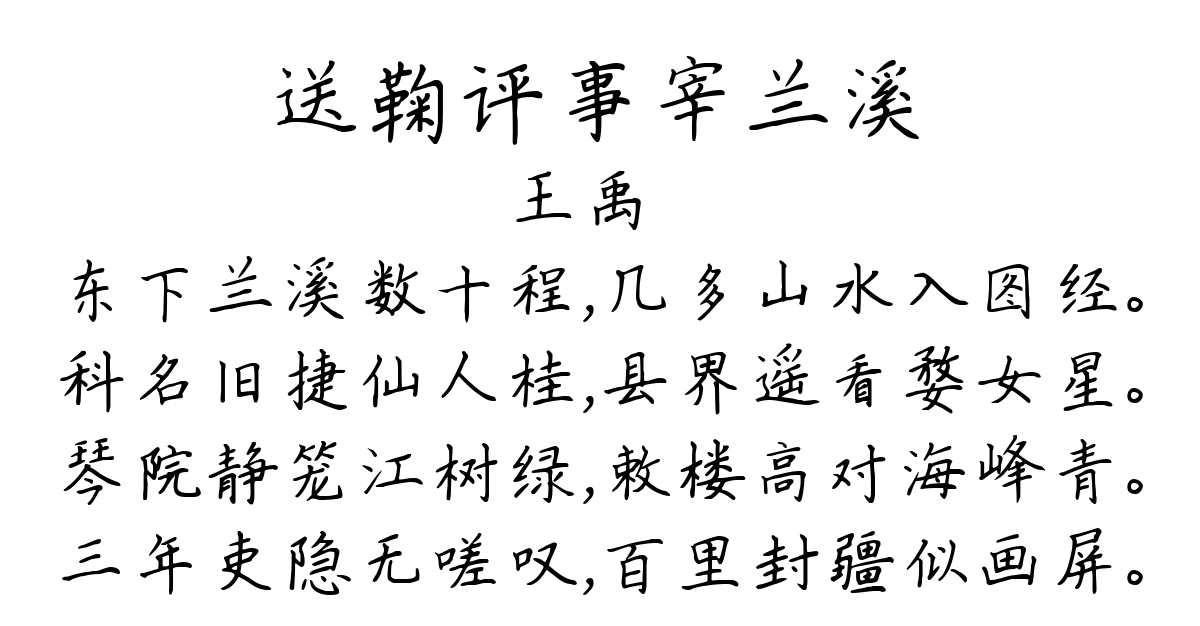 送鞠评事宰兰溪
王禹
东下兰溪数十程,几多山水入图经。
科名旧捷仙人桂,县界遥看婺女星。
琴院静笼江树绿,敕楼高对海峰青。
三年吏隐无嗟叹,百里封疆似画屏。